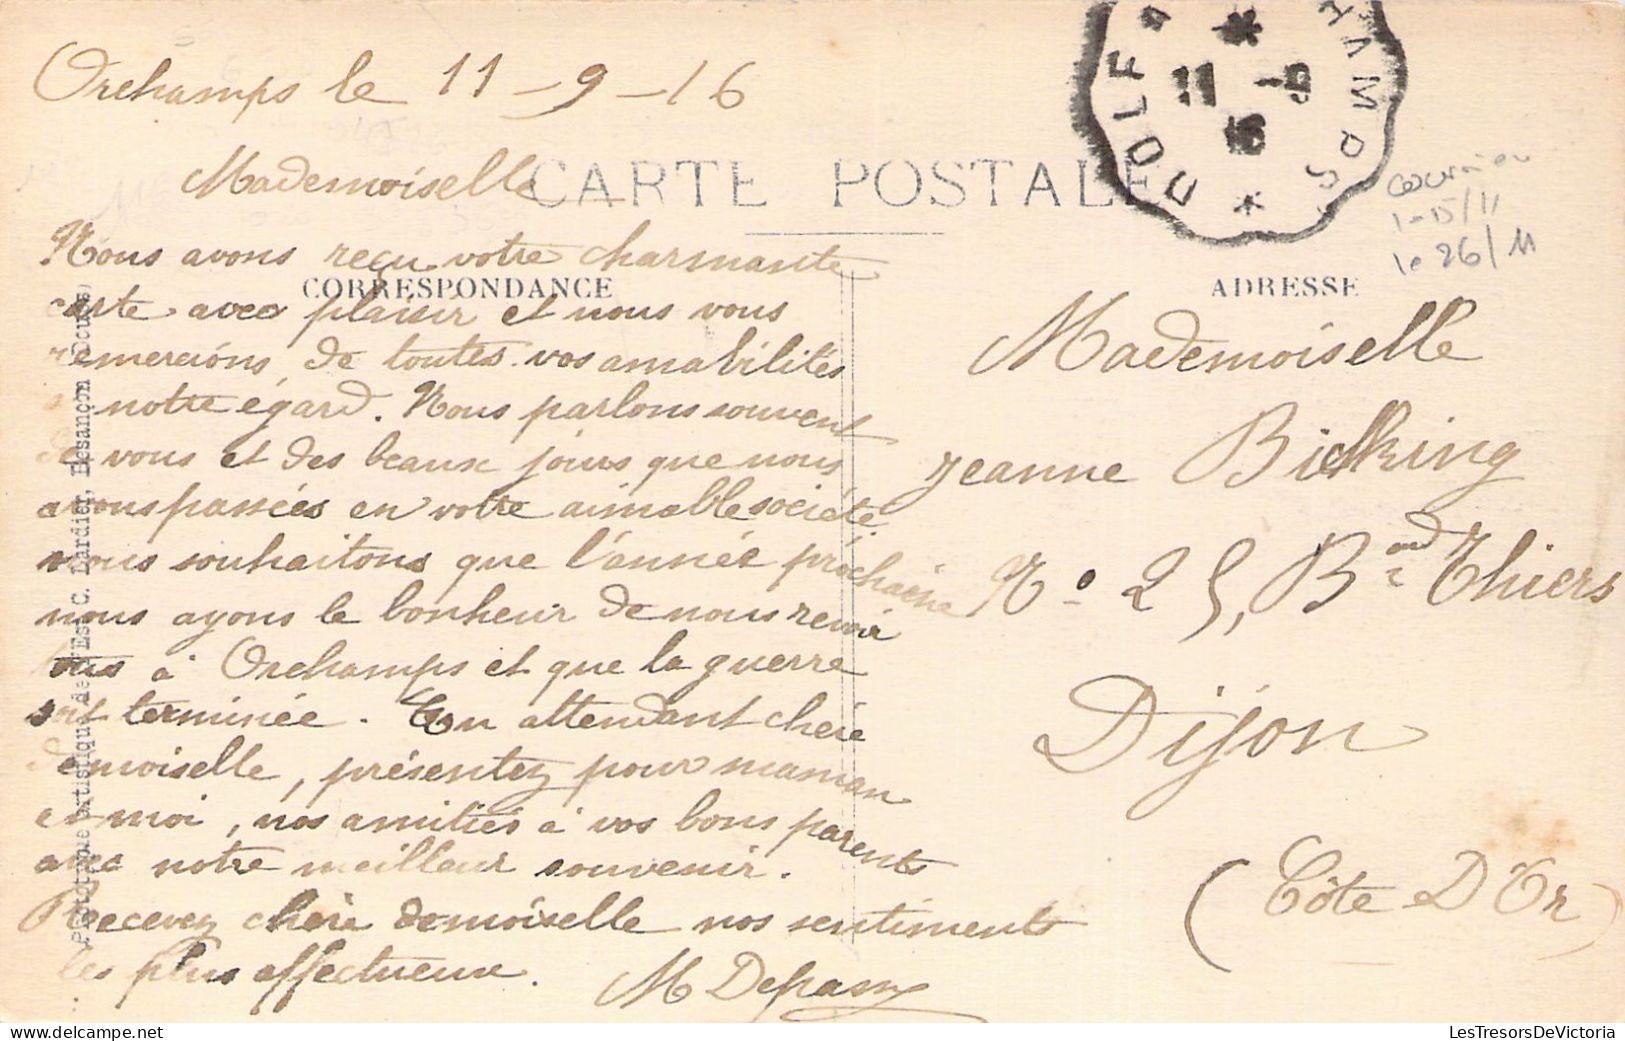 Orchamps le 11-9-16
Mademoiselle
CARTE POSTALE
Nous avons reçu votre charmante
CORRESPONDANCE
carte avec plaisir et nous vous
remercions de toutes vos amabilités
à notre égard. Nous parlons souvent
de vous et des beaux jours que nous
avons passées en votre aimable société
nous souhaitons que l'année prochaine
nous ayons le bonheur de nous revoir
tous à Orchamps et que la guerre
soit terminée. En attendant chère
demoiselle, présentez pour maman
et moi, nos amitiés à vos bons parents
avec notre meilleur souvenir.
Recevez chère demoiselle nos sentiments
les plus affectueux.
M
Phototypie artistique de l'Est C. Lardier, Besançon (Doubs)
ORCHAMPS
DOLE
11 -9
16
1-15/11
le 26/11
ADRESSE
Mademoiselle
Jeanne
No 25, Bard Thiers
Dijon
(Côte D'Or)
LesTresorsDeVictoria
https://www.delcampe.net